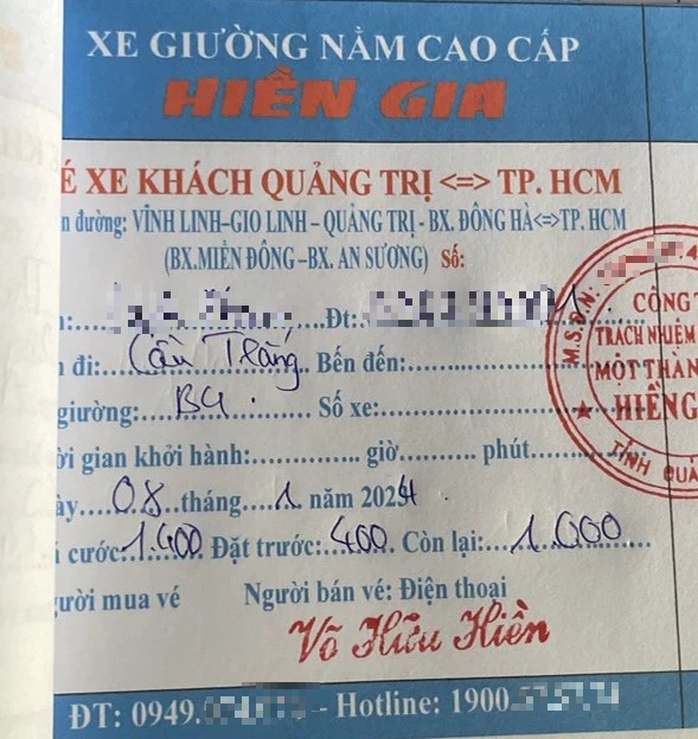 XE GIƯỜNG NẰM CAO CẤP
HIỀN GIA
É XE KHÁCH QUẢNG TRỊ <=> TP. HCM
n đường: VĨNH LINH-GIO LINH - QUẢNG TRỊ - BX. ĐÔNG HÀ<=>TP. HCM
(BX.MIỀN ĐÔNG -BX. AN SƯƠNG) Số:
:.... Đt:
n đi: Cầu Tràng Bến đến:
giường: B4. Số xe:
ời gian khởi hành: giờ phút
ày 08 tháng 1 năm 2024
cước: 1.400. Đặt trước: 400. Còn lại: 1.000
ười mua vé Người bán vé: Điện thoại
Võ Hữu Hiền
ĐT: 0949. - Hotline: 1900.
M.S.D.N:
CÔNG T
TRÁCH NHIỆM
MỘT THÀN
HIỀN G
★ TỈNH QUẢ